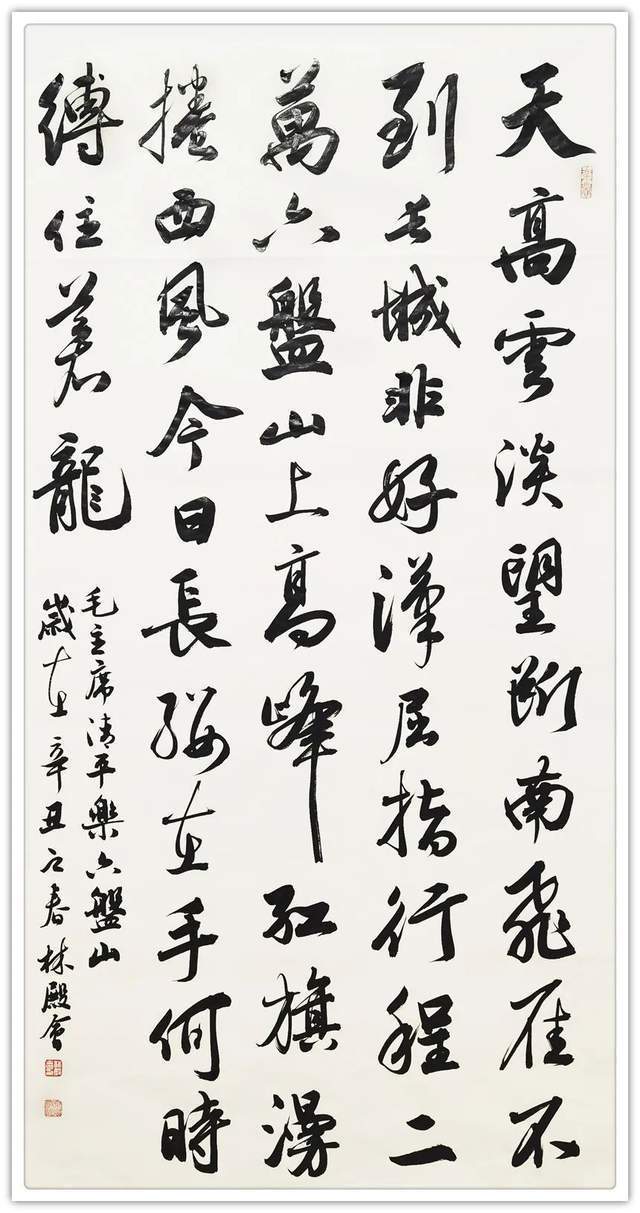 天高雲淡望断南飛雁不
到长城非好漢屈指行程二
萬六盤山上高峰红旗漫
捲西風今日長缨在手何時
縛住蒼龍
毛主席清平樂六盤山
歲在辛丑之春林殿会